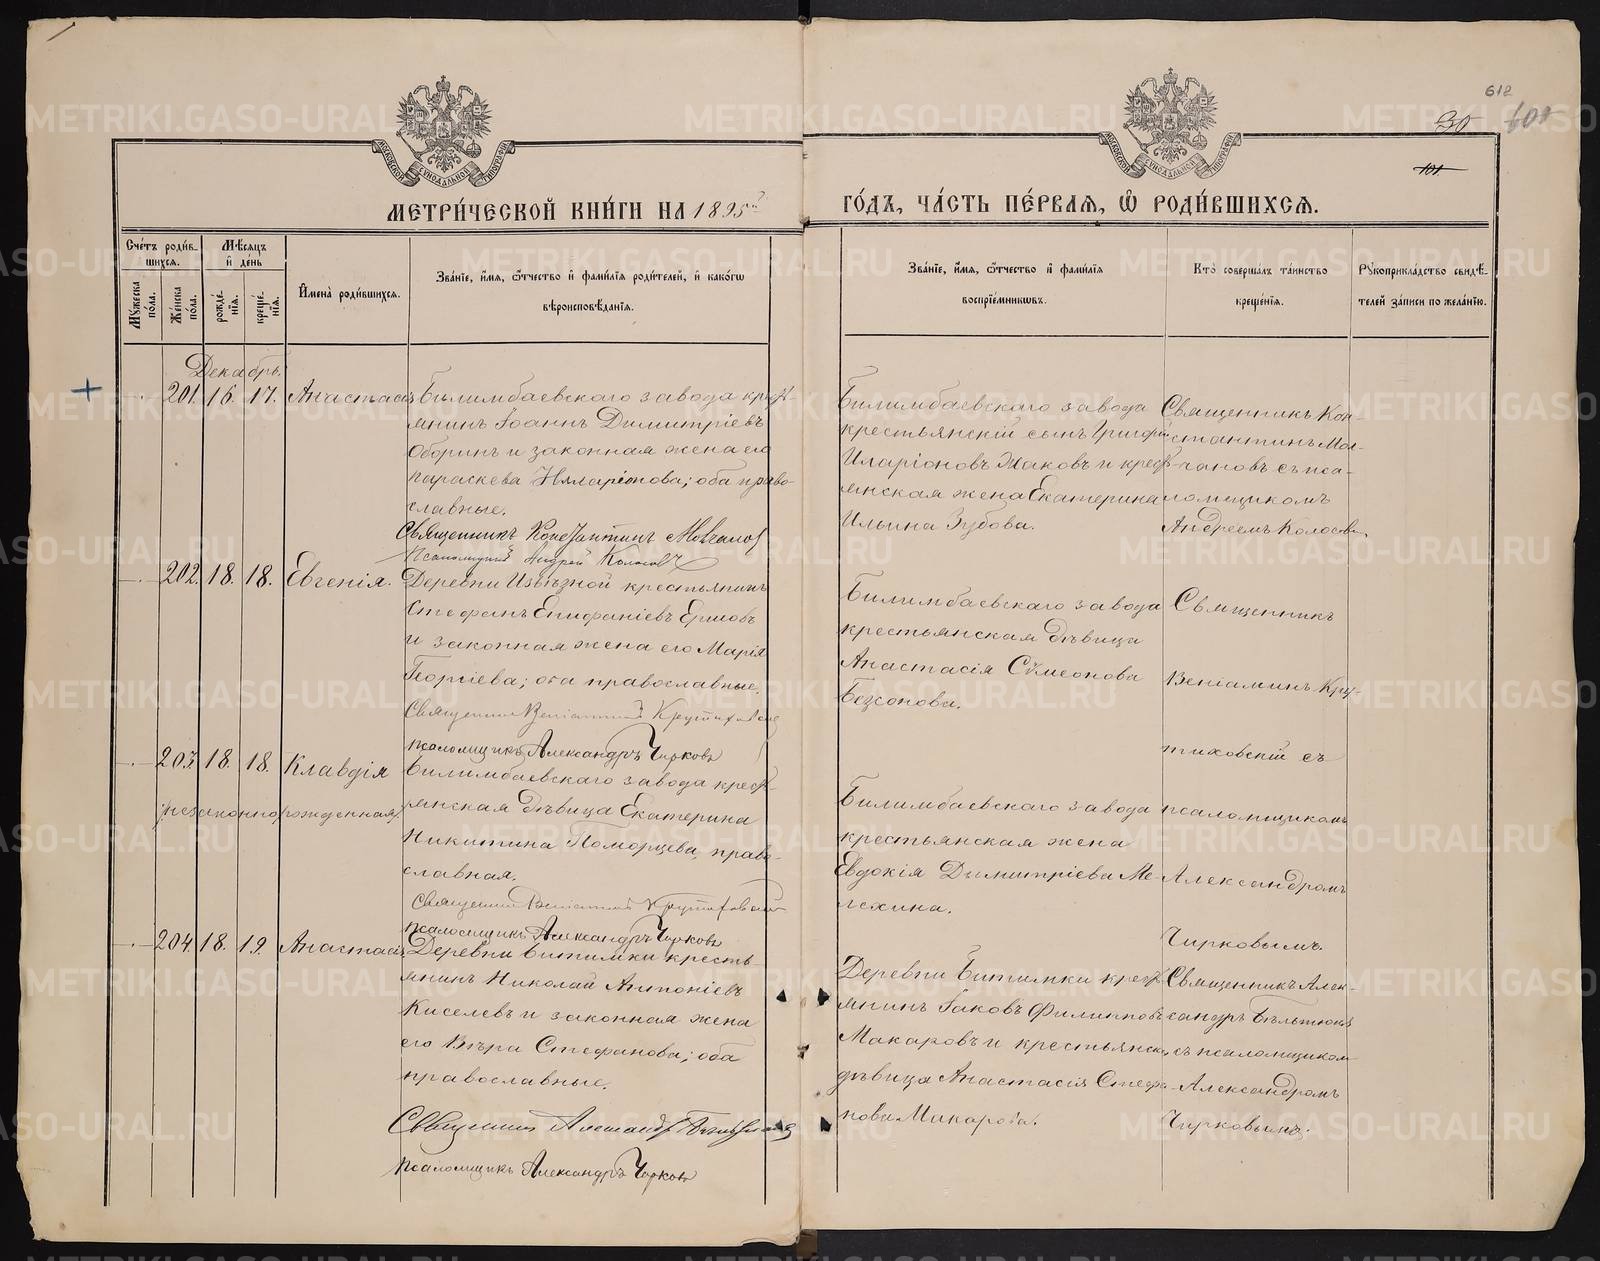 612
30 601
101
МОСКОВСКОЙ СѴНОДАЛЬНОЙ ТИПОГРАФІИ
МОСКОВСКОЙ СѴНОДАЛЬНОЙ ТИПОГРАФІИ
МЕТРИ́ЧЕСКОЙ КНИ́ГИ НА 1895й
ГО́ДЪ, ЧА́СТЬ ПЕ́РВАЯ, Ѡ҆ РОДИ́ВШИХСЯ.
Сче́тъ роди́в-
шихся.
Мꙋ́жеска по́ла.
Же́нска по́ла.
Мѣ́сяцъ
и҆ де́нь
рожде́-
нїѧ.
креще́-
нїѧ.
И҆мена̀ роди́вшихся.
Зва́нїе, и҆́мя, ѻ҆́тчество и҆ фами́лїя роди́телей, и҆ како́гѡ
вѣроисповѣ́данїя.
Зва́нїе, и҆́мя, ѻ҆́тчество и҆ фами́лїя
воспрїе́мникѡвъ.
Кто̀ соверша́лъ та́инство
креще́нїя.
Рꙋкоприкла́дство свидѣ́-
телей за́писи по жела́нїю.
Декабрь.
201. 16. 17. Анастасія
Билимбаевскаго завода крест-
янинъ Іоаннъ Димитріевъ
Оборинъ и законная жена его
Параскева Илларіонова; оба право-
славные.
Священникъ Константинъ Молчановъ
Псаломщикъ Андрей Колосовъ
Билимбаевскаго завода
крестьянскій сынъ Григорій
Иларіоновъ Жаковъ и крест-
янская жена Екатерина
Ильина Зубова.
Священникъ Кон-
стантинъ Мол-
чановъ съ пса-
ломщикомъ
Андреемъ Колосовы.
202. 18. 18. Евгенія.
Деревни Извѣзной крестьянинъ
Стефанъ Епифаніевъ Ермовъ
и законная жена его Марія
Георгіева; оба православные.
Священникъ Веніаминъ Крутиховскій
псаломщикъ Александръ Чирковъ
Билимбаевскаго завода
крестьянская дѣвица
Анастасія Сѵмеонова
Безсонова.
Священникъ
Веніаминъ Кру-
тиховскій съ
псаломщикомъ
Александромъ
Чирковымъ.
203. 18. 18. Клавдія
(незаконнорожденная)
Билимбаевскаго завода крест-
янская дѣвица Екатерина
Никитина Поморцева, право-
славная.
Священникъ Веніаминъ Крутиховскій
псаломщикъ Александръ Чирковъ
Билимбаевскаго завода
крестьянская жена
Евдокія Димитріева Ме-
лехина.
204. 18. 19. Анастасія
Деревни Битимки кресть-
янинъ Николай Антоніевъ
Киселевъ и законная жена
его Вѣра Стефанова; оба
православные.
Священникъ Александръ
псаломщикъ Александръ Чирковъ
Деревни Битимки крест-
янинъ Іаковъ Филипповъ
Макаровъ и крестьянск.
дѣвица Анастасія Стефа-
нова Макарова.
Священникъ Алек-
сандръ Бѣльтюковъ
съ псаломщикомъ
Александромъ
Чирковымъ.
METRIKI.GASO-URAL.RU